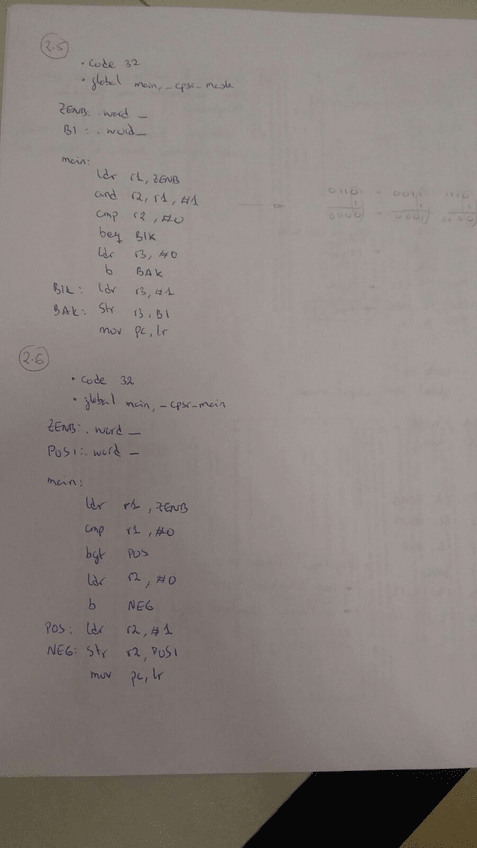 2.5
. code 32
. global main, _cpsr_mode
ZENB: .word _
BI: .word _
main:
ldr r1, ZENB
and r2, r1, #1
cmp r2, #0
beq BIK
ldr r3, #0
b BAK
BIK: ldr r3, #1
BAK: str r3, BI
mov pc, lr
2.6
. code 32
. global main, _cpsr_main
ZENB: .word _
POSI: .word _
main:
ldr r1, ZENB
cmp r1, #0
bgt POS
ldr r2, #0
b NEG
POS: ldr r2, #1
NEG: str r2, POSI
mov pc, lr